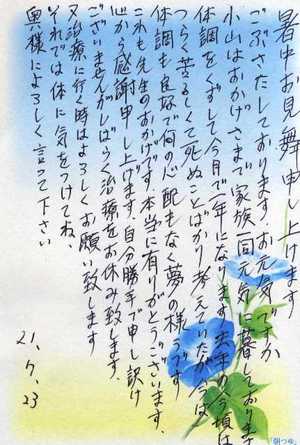 暑中お見舞申し上げます
ごぶさたしております。お元気ですか
小山はおかげさまで家族一同元気に暮しております
体調をくずして今月で一年になります。去年の今頃は
つらく苦るしくて死ぬことばかり考えていたが今では
体調も良なで何の心配もなく夢の様です
これも先生のおかげです。本当に有りがとうございます。
心から感謝申し上げます。自分勝手で申し訳け
ございませんがしばらく治療をお休み致します。
又治療に行く時はよろしくお願い致します
それでは体に気をつけてね、
奥様によろしく言って下さい
21.7.23
「朝つゆ」